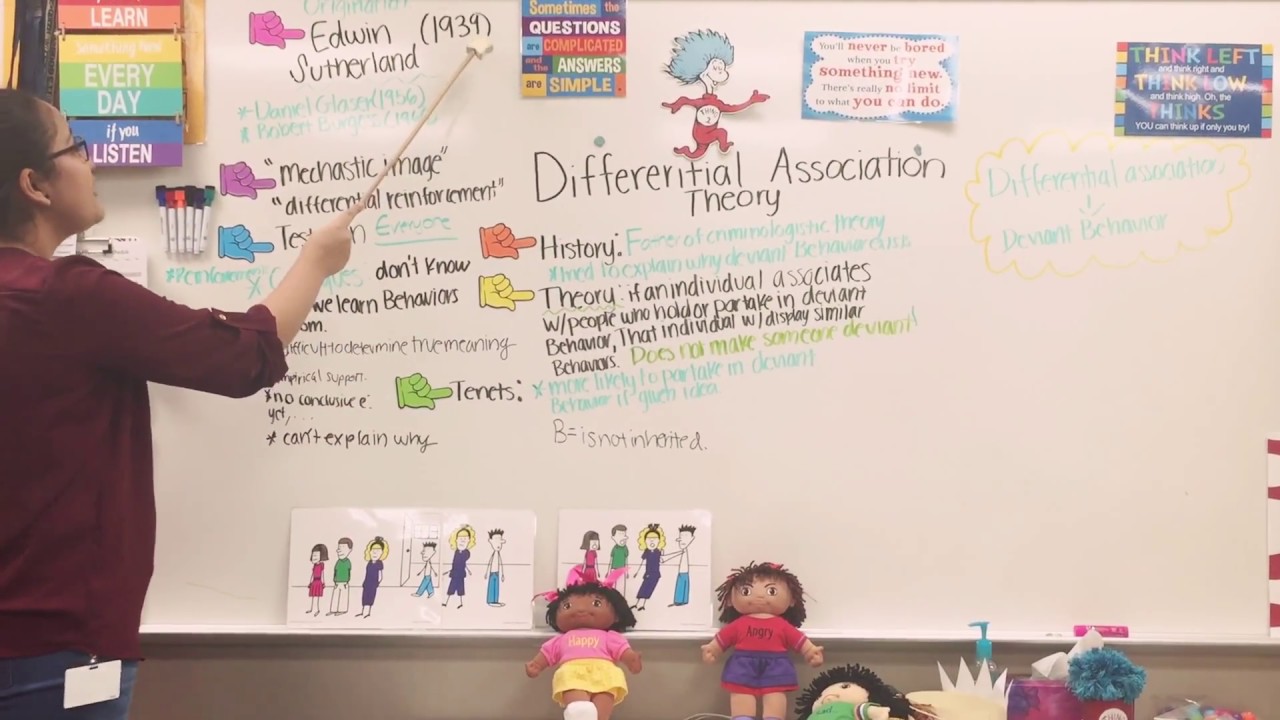 LEARN
Something New
EVERY
DAY
if you
LISTEN
Edwin (1939)
Sutherland
*Daniel Glaser (1956)
* Robert
"mechastic image"
"differential reinforcement"
Everyone
don't know
we learn Behaviors
difficult to determine true meaning
empirical support.
*no conclusive e:
yet,...
* can't explain why
Sometimes the
QUESTIONS
are COMPLICATED
and the ANSWERS
are SIMPLE.
THING
Differential Association
Theory
History: Father of criminologistic theory
to explain why deviant Behavior exists
Theory: if an individual associates
w/people who hold or partake in deviant
Behavior, That individual w/ display similar
Behaviors. Does not make someone deviant!
Tenets: * more likely to partake in deviant
Behavior if given idea
B= is not inherited.
You'll never be bored
when you try
something new.
There's really no limit
to what you can do.
THINK LEFT
and think right and
THINK LOW
and think high. Oh, the
THINKS
YOU can think up if only you try!
Differential association
Deviant Behavior
Happy
Angry